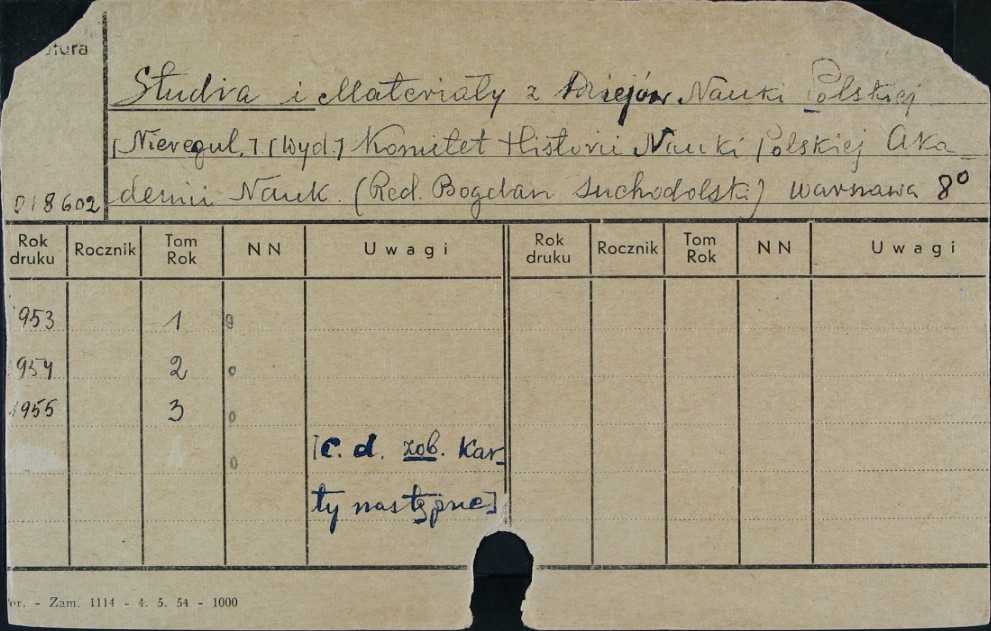 Studia i Materiały z Dziejów Nauki Polskiej
[Nieregul.] [Wyd.] Komitet Historii Nauki Polskiej Aka-
018602 demii Nauk. (Red. Bogdan Suchodolski) Warszawa 8°
Rok druku Rocznik Tom Rok NN Uwagi Rok druku Rocznik Tom Rok NN Uwagi
1953 1 0
1954 2 0
1955 3 0
0 [c. d. zob. kar-
ty następne]
Zam. 1114 - 4. 5. 54 - 1000